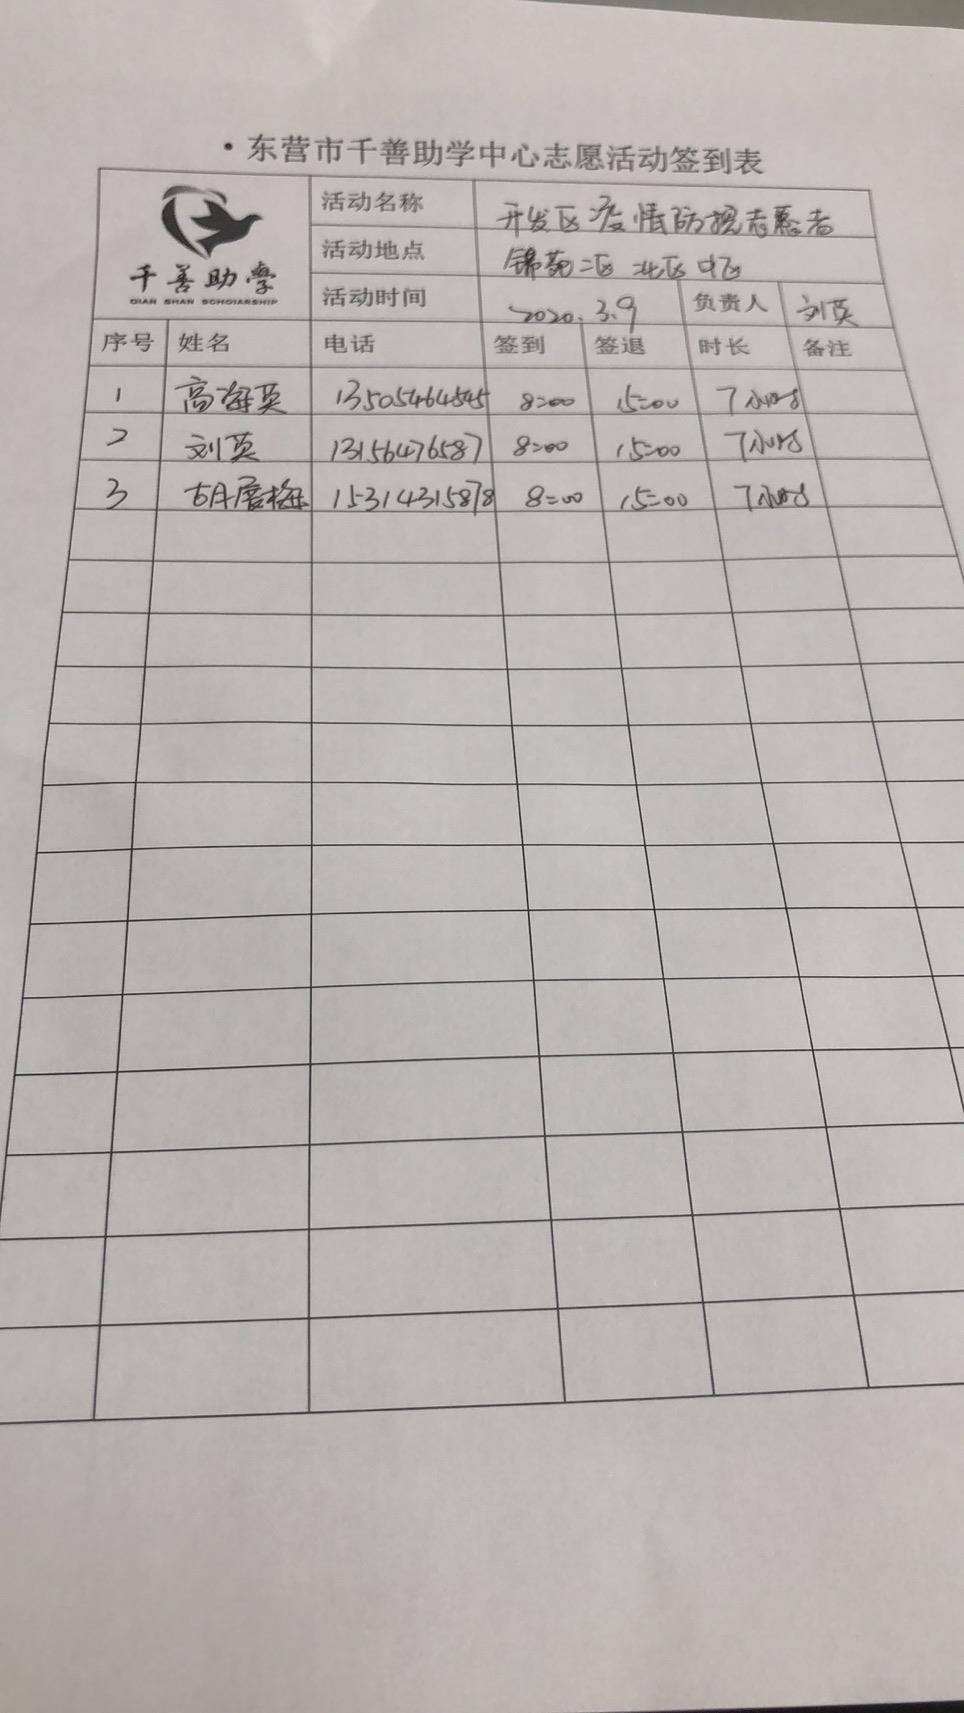 ·东营市千善助学中心志愿活动签到表
千善助学
QIAN SHAN SCHOLARSHIP
活动名称 开发区疫情防控志愿者
活动地点 锦苑二区 北区 中区
活动时间 2020.3.9 负责人 刘英
序号 姓名 电话 签到 签退 时长 备注
1 高海英 13505464545 8:00 15:00 7小时
2 刘英 13156476587 8:00 15:00 7小时
3 胡唐梅 15314315878 8:00 15:00 7小时